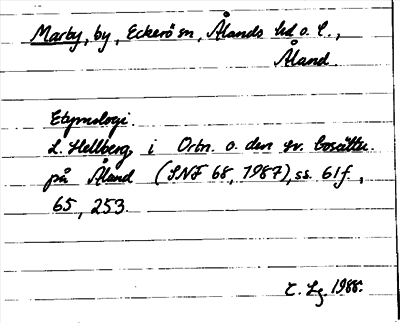 Marby, by, Eckerö sn, Ålands hd o. l.,
Åland.
Etymologi.
L. Hellberg i Ortn. o. den sv. bosättn.
på Åland (SNF 68, 1987), ss. 61f,
65, 253.
C. Lg. 1988.